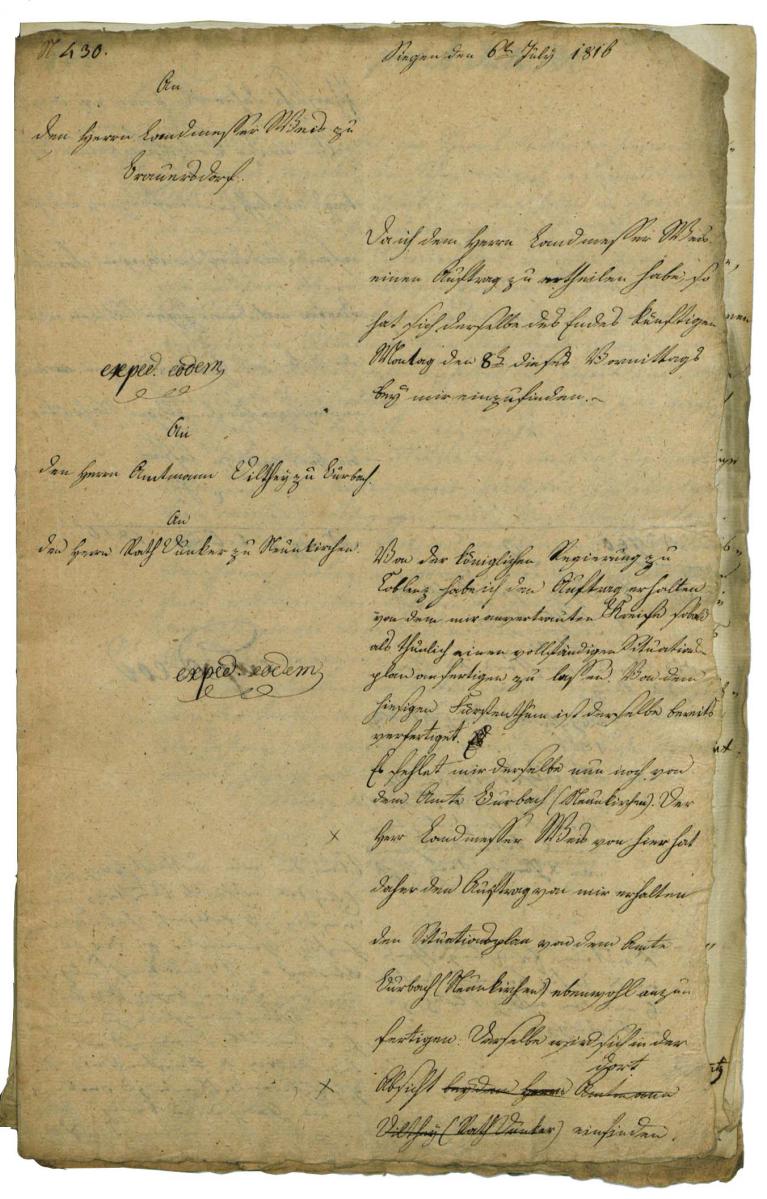 N 430.
Siegen den 6t July 1816
An
den Herrn Landmesser Weis zu
Brauersdorf.
Da ich dem Herrn Landmesser Weis
einen Auftrag zu ertheilen habe, so
hat sich derselbe des Endes künftigen
Montag den 8t dieses Vormittags
bey mir einzufinden. ~
exped. eodem
An
den Herrn Amtmann Dilthey zu Burbach.
An
den Herrn Rath Dunker zu Neunkirchen.
Von der Königlichen Regierung zu
Coblenz habe ich den Auftrag erhalten
von dem mir anvertrauten Kreise sobald
als thunlich einen vollständigen Situations-
plan anfertigen zu lassen. Von dem
hiesigen Fürstenthum ist derselbe bereits
verfertiget.
exped. eodem
Es fehlet mir derselbe nun noch von
dem Amte Burbach (Neunkirchen). Der
× Herr Landmesser Weis von hier hat
daher den Auftrag von mir erhalten
den Situationsplan von dem Amte
Burbach (Neunkirchen) ebenwohl anzu
fertigen. Derselbe wird sich in der
dort
× Absicht bey dem Herrn Amtmann
Dilthey (Rath Dunker) einfinden,